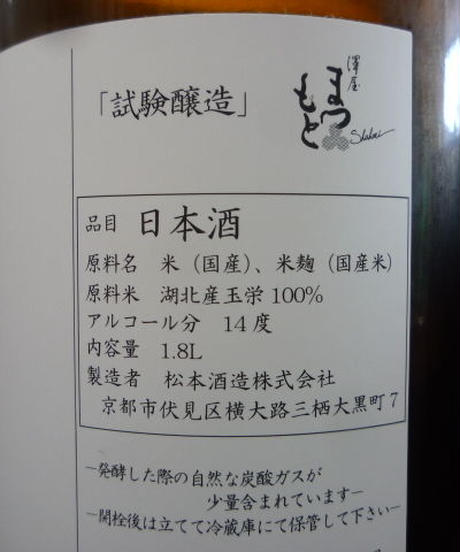 「試験醸造」
澤屋
まつもと
Shuhari
品目 日本酒
原料名 米（国産）、米麹（国産米）
原料米 湖北産玉栄100%
アルコール分 14度
内容量 1.8L
製造者 松本酒造株式会社
京都市伏見区横大路三栖大黒町7
―発酵した際の自然な炭酸ガスが
少量含まれています―
―開栓後は立てて冷蔵庫にて保管して下さい―